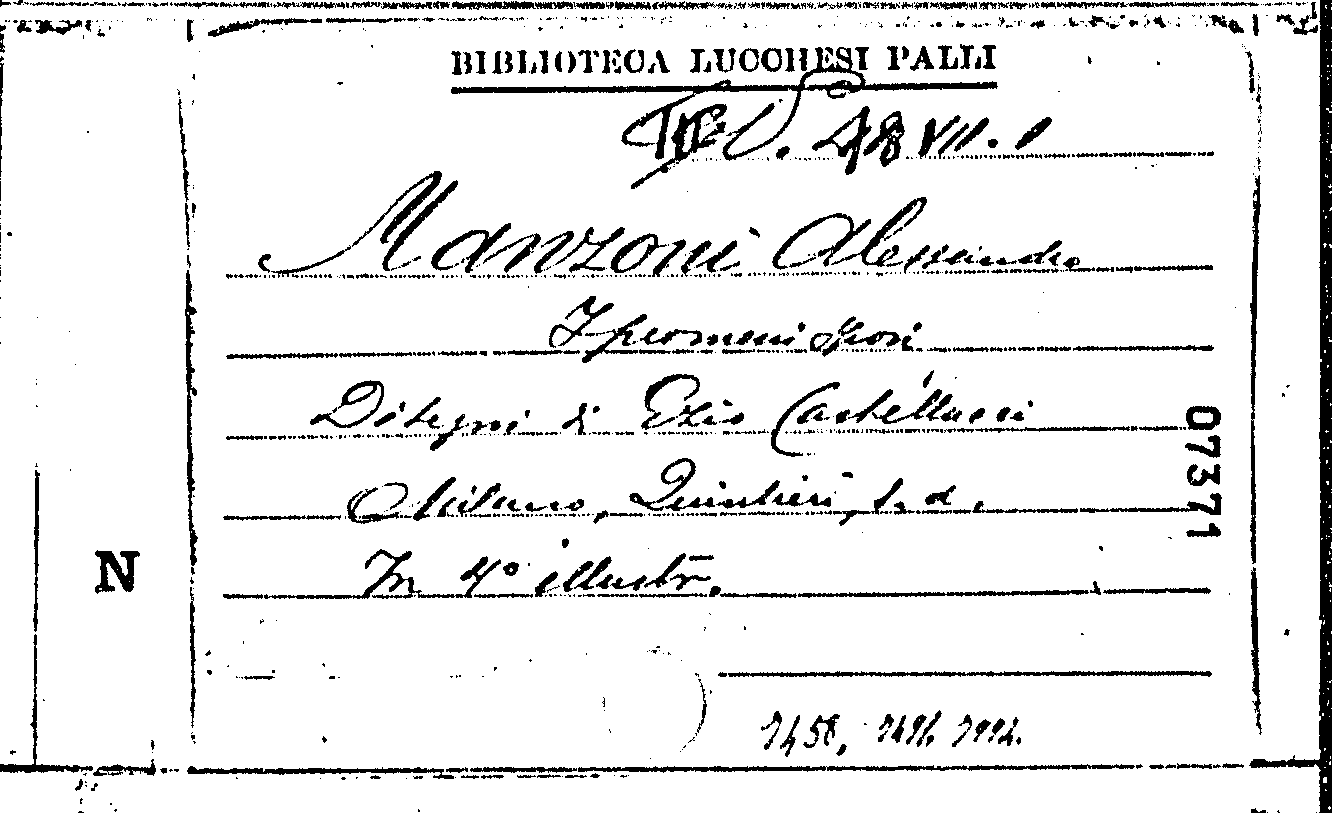 BIBLIOTECA LUCCHESI PALLI
48 VII. 1
Manzoni Alessandro
I promessi sposi
Disegni di Ezio Castellucci
Milano, Quintieri, s. d.
In 4° illustr.
07371
N